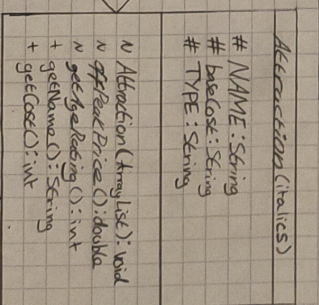 Attraction (italics)
# NAME : String
# baseCost : String
# TYPE : String
~ Attraction (ArrayList) : void
~ offPeakPrice () : double
~ getAgeRating () : int
+ getName () : String
+ getCost () : int